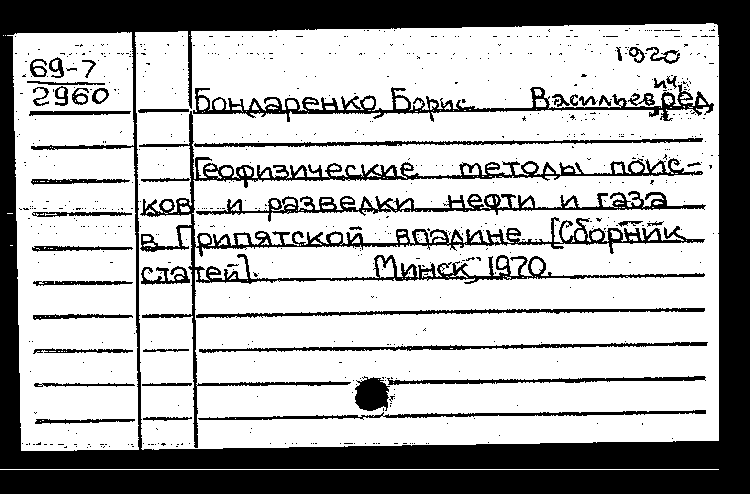 1920
69-7
2960
Бондаренко, Борис Васильевич, ред.
Геофизические методы поис-
ков и разведки нефти и газа
в Припятской впадине. [Сборник
статей]. Минск, 1970.